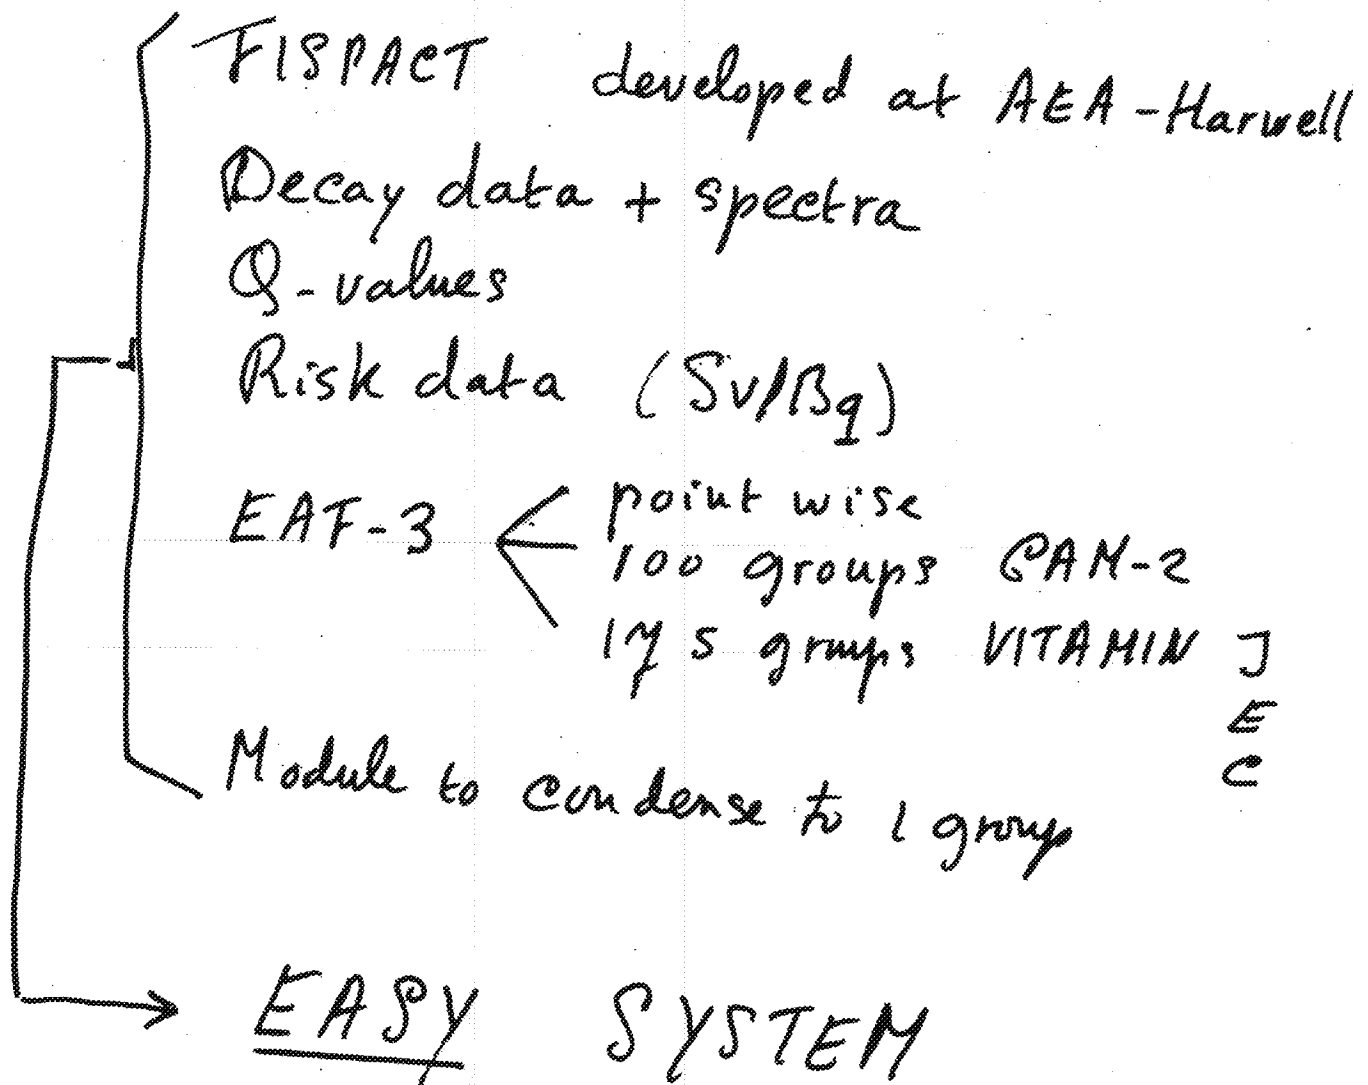 FISPACT developed at AEA-Harwell
Decay data + spectra
Q-values
Risk data (Sv/Bq)
EAF-3
point wise
100 groups GAM-2
175 groups VITAMIN J
E
C
Module to condense to 1 group
EASY SYSTEM